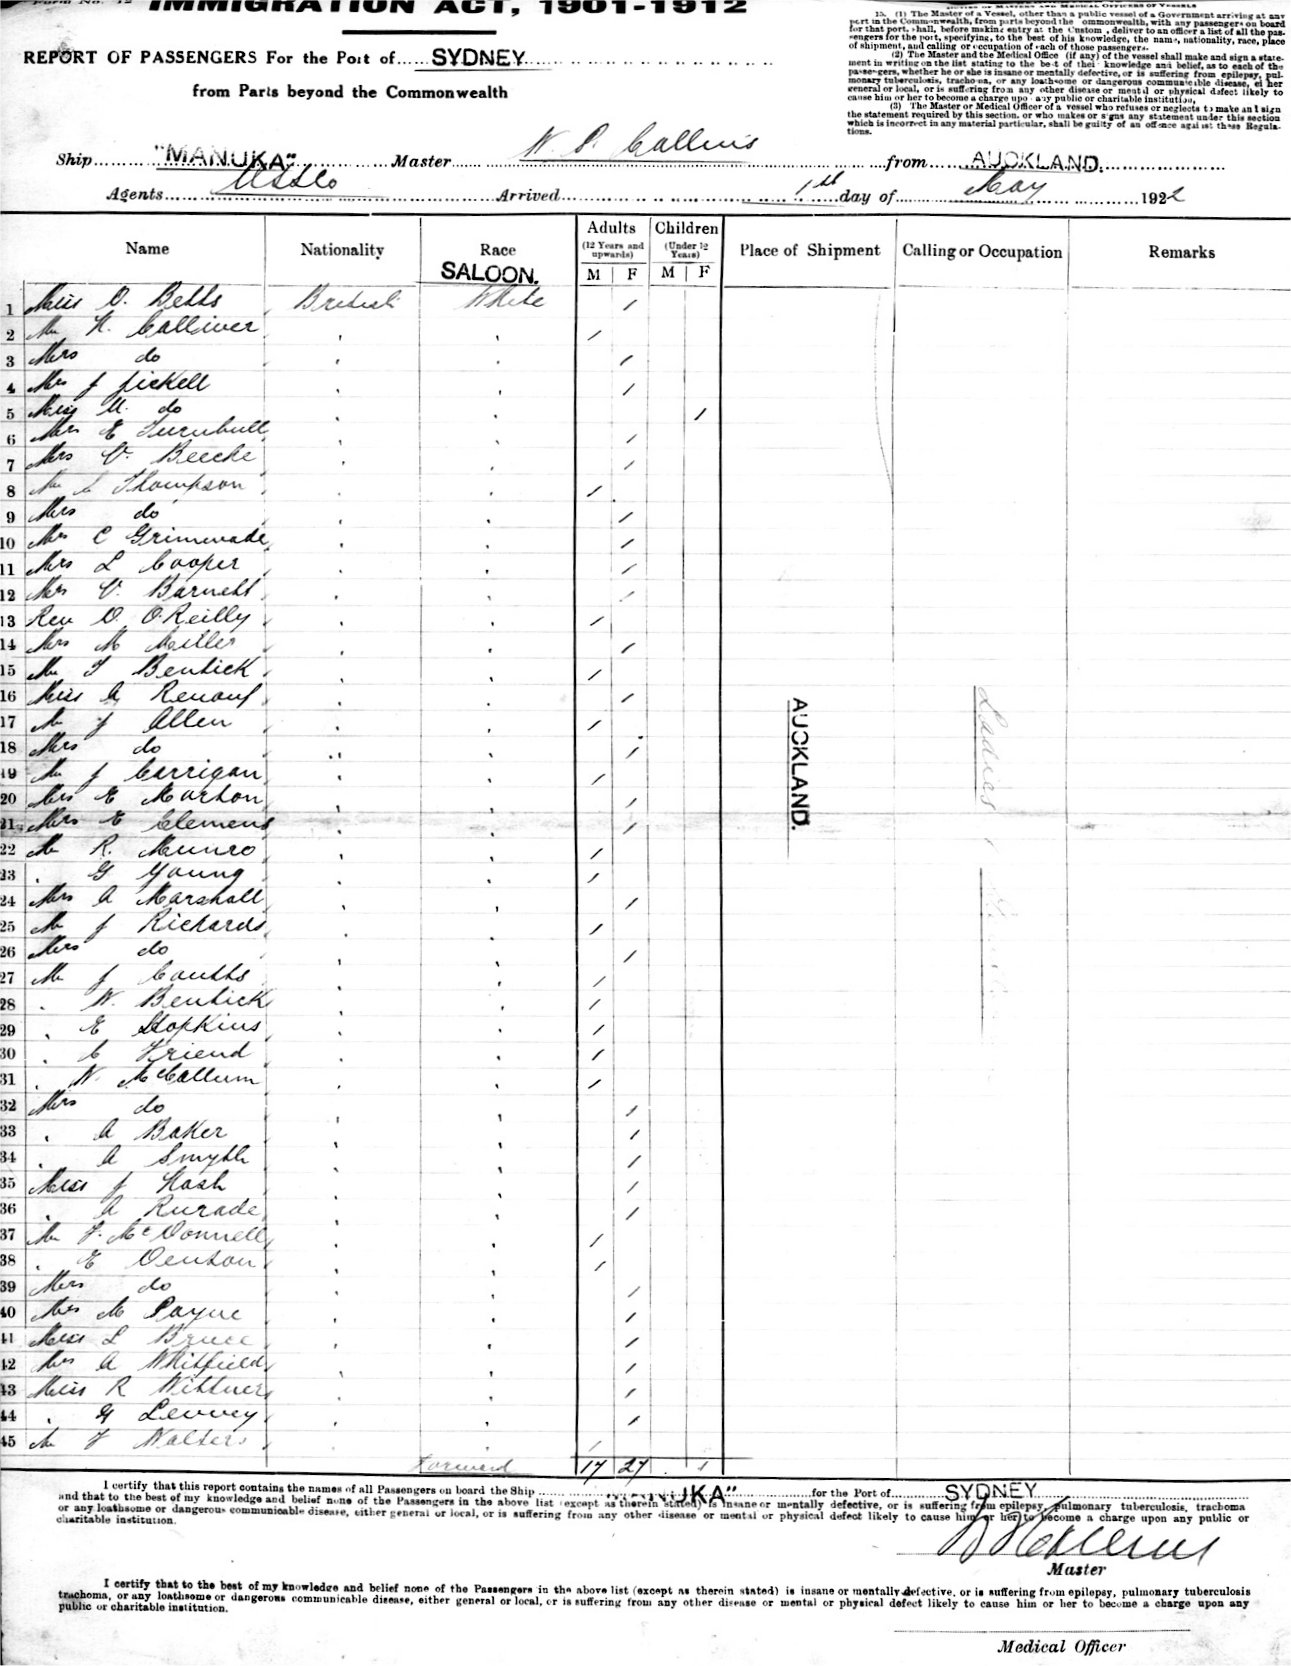 Form No. 12
IMMIGRATION ACT, 1901-1912
REPORT OF PASSENGERS For the Port of SYDNEY
from Parts beyond the Commonwealth
15. (1) The Master of a Vessel, other than a public vessel of a Government arriving at any
port in the Commonwealth, from parts beyond the ommonwealth, with any passengers on board
for that port, shall, before making entry at the Custom , deliver to an officer a list of all the pas-
sengers for the port, specifying, to the best of his knowledge, the name, nationality, race, place
of shipment, and calling or occupation of each of those passengers.
(2) The Master and the Medical Office (if any) of the vessel shall make and sign a state-
ment in writing on the list stating to the best of their knowledge and belief, as to each of the
passengers, whether he or she is insane or mentally defective, or is suffering from epilepsy, pul-
monary tuberculosis, trachoma, or any loathsome or dangerous communicable disease, either
general or local, or is suffering from any other disease or mental or physical defect likely to
cause him or her to become a charge upon any public or charitable institution,
(3) The Master or Medical Officer of a vessel who refuses or neglects to make and sign
the statement required by this section, or who makes or signs any statement under this section
which is incorrect in any material particular, shall be guilty of an offence against these Regula-
tions.
Ship "MANUKA" Master W. D. Collins from AUCKLAND.
Agents USSCo Arrived 1st day of May 1922
Name Nationality Race Adults Children Place of Shipment Calling or Occupation Remarks
(12 Years and upwards) (Under 12 Years)
SALOON. M F M F
1 Miss O. Betts British White /
2 Mr H. Calliver /
3 Mrs do /
4 Mrs J Jickell /
5 Miss M. do /
6 Mrs E Turnbull /
7 Mrs V. Beeche /
8 Mr C Thompson /
9 Mrs do /
10 Mrs C Grimwade /
11 Mrs L Cooper /
12 Mrs V. Barnett /
13 Rev O O'Reilly /
14 Mrs M Miller /
15 Mr T Bentick /
16 Miss A Renouf /
17 Mr J Allen /
18 Mrs do /
19 Mr J Corrigan /
20 Mrs E Morton /
21 Mrs E Clemens /
22 Mr R. Munro /
23 . G Young /
24 Mrs A Marshall /
25 Mr J Richards /
26 Mrs do /
27 Mr J Coutts /
28 . W. Bentick /
29 . E Hopkins /
30 . C Friend /
31 . N. McCallum /
32 Mrs do /
33 . A Baker /
34 . A Smyth /
35 Miss J Nash /
36 . A Rurade /
37 Mr F. McDonnell /
38 . E Denton /
39 Mrs do /
40 Mrs M Payne /
41 Miss L Bruce /
42 Mrs A Whitfield /
43 Miss R Wittner /
44 . G Levvey /
45 Mr F Walters /
AUCKLAND.
Ladies
Forward 17 27 . 1
I certify that this report contains the names of all Passengers on board the Ship "MANUKA" for the Port of SYDNEY
and that to the best of my knowledge and belief none of the Passengers in the above list (except as therein stated) is insane or mentally defective, or is suffering from epilepsy, pulmonary tuberculosis, trachoma
or any loathsome or dangerous communicable disease, either general or local, or is suffering from any other disease or mental or physical defect likely to cause him or her to become a charge upon any public or
charitable institution.
W D Collins
Master
I certify that to the best of my knowledge and belief none of the Passengers in the above list (except as therein stated) is insane or mentally defective, or is suffering from epilepsy, pulmonary tuberculosis
trachoma, or any loathsome or dangerous communicable disease, either general or local, or is suffering from any other disease or mental or physical defect likely to cause him or her to become a charge upon any
public or charitable institution.
Medical Officer